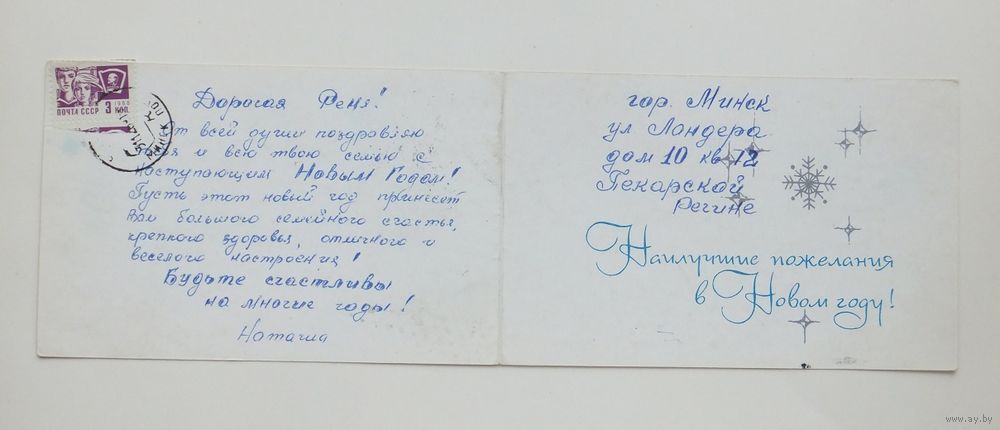 1966
ПОЧТА СССР 3 КОП
Дорогая Реня!
От всей души поздравляю
тебя и всю твою семью с
наступающим Новым Годом!
Пусть этот новый год принесёт
Вам большого семейного счастья,
крепкого здоровья, отличного и
веселого настроения!
Будьте счастливы
на многие годы!
Наташа
гор. Минск
ул Ландера
дом 10 кв 12
Пекарской
Регине
Наилучшие пожелания
в Новом году!
www.ay.by